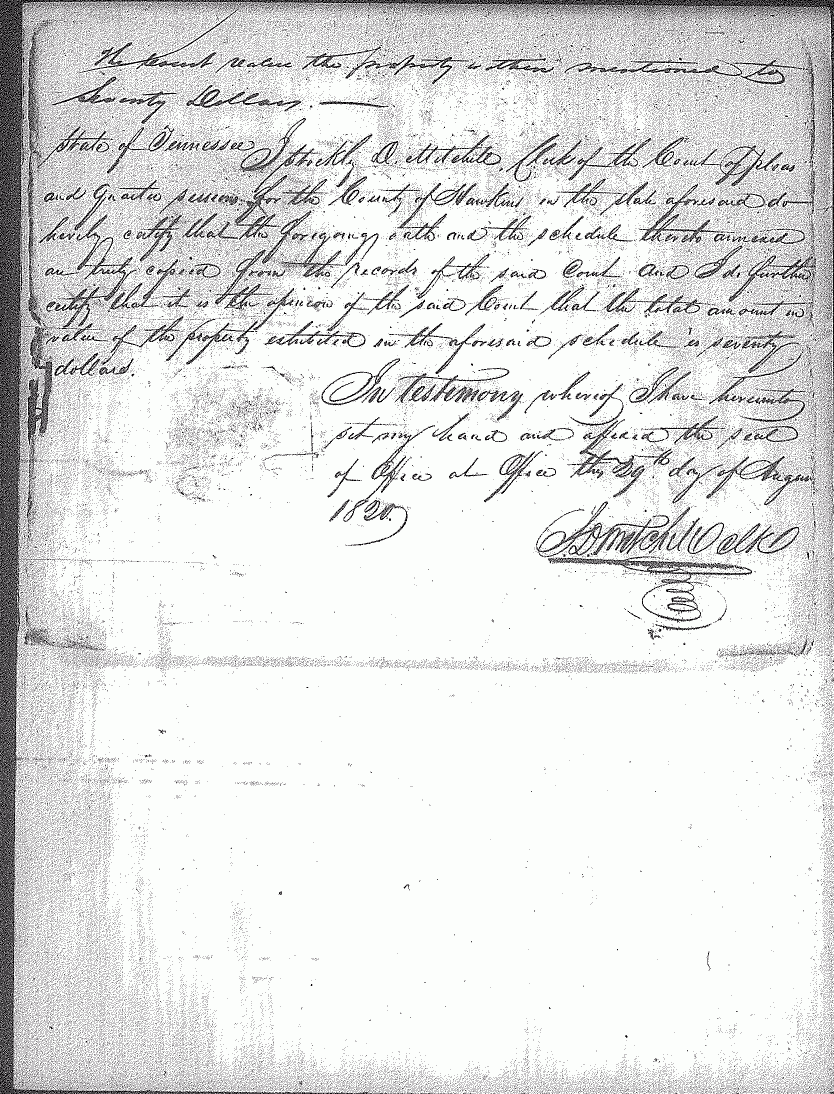 The Court value the property within mentioned to
Seventy Dollars. —
State of Tennessee I Stockly D. Mitchell, Clerk of the Court of pleas
and Quarter sessions for the County of Hawkins in the state aforesaid do
hereby certify that the foregoing oath and the schedule thereto annexed
are truly copied from the records of the said Court and I do further
certify that it is the opinion of the said Court that the total amount in
value of the property exhibited in the aforesaid schedule is seventy
dollars.
In testimony whereof I have hereunto
set my hand and affixed the seal
of Office at Office this 29th day of August
1820.
S. D. Mitchell Clk